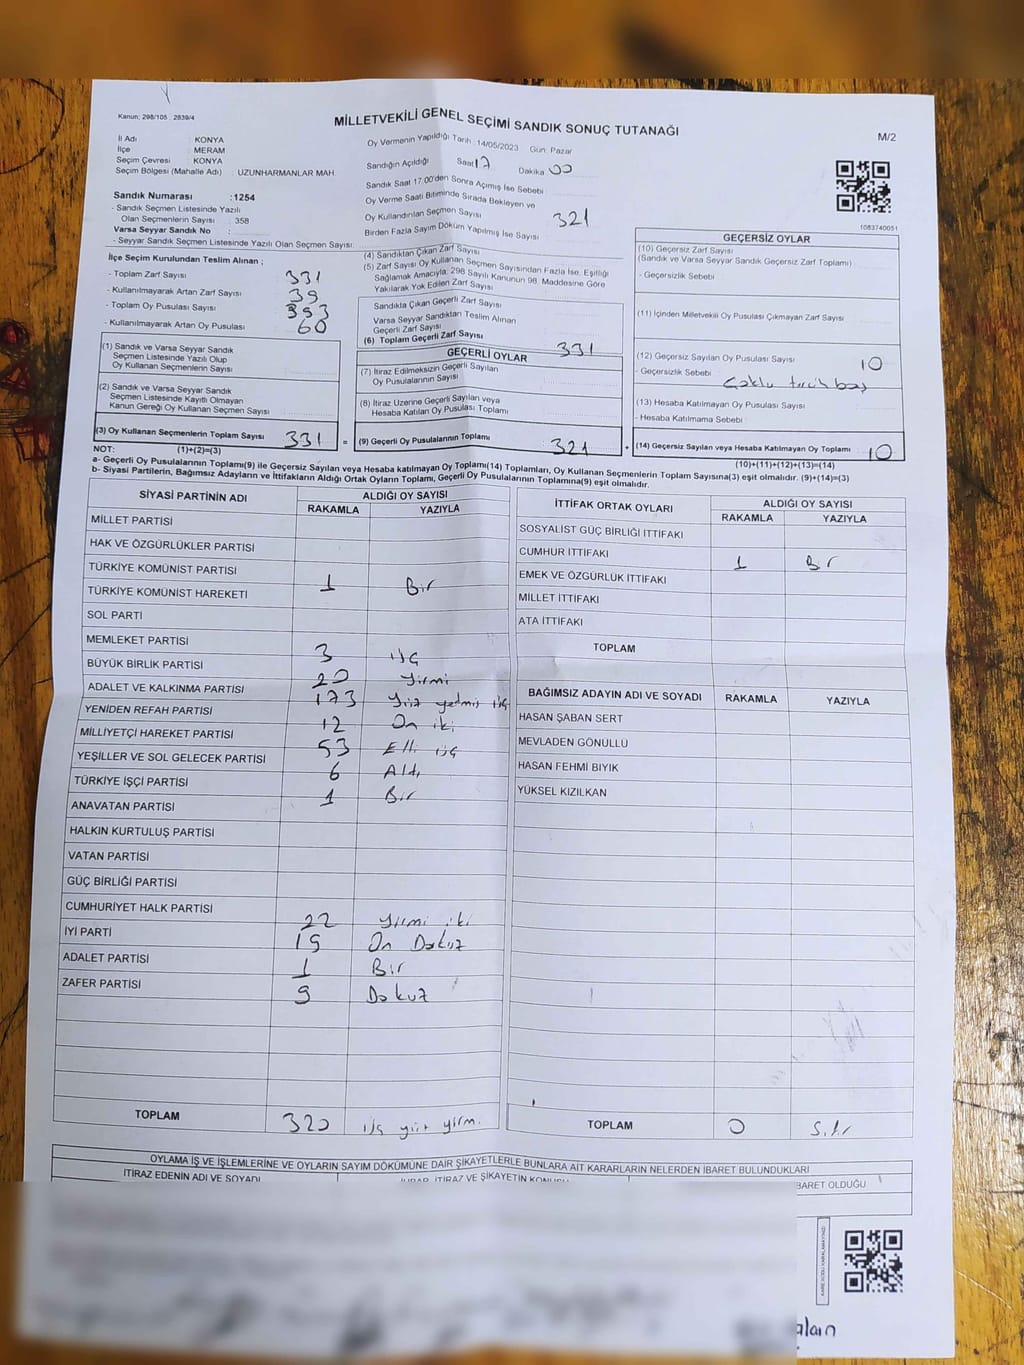 Kanun: 298/105 : 2839/4
MİLLETVEKİLİ GENEL SEÇİMİ SANDIK SONUÇ TUTANAĞI
M/2
İl Adı : KONYA
İlçe : MERAM
Seçim Çevresi : KONYA
Seçim Bölgesi (Mahalle Adı) : UZUNHARMANLAR MAH.
Sandık Numarası : 1254
- Sandık Seçmen Listesinde Yazılı
Olan Seçmenlerin Sayısı : 358
Varsa Seyyar Sandık No :
- Seyyar Sandık Seçmen Listesinde Yazılı Olan Seçmen Sayısı:
Oy Vermenin Yapıldığı Tarih: 14/05/2023 Gün: Pazar
Sandığın Açıldığı Saat 17 Dakika 00
Sandık Saat 17:00'den Sonra Açımış İse Sebebi
Oy Verme Saati Bitiminde Sırada Bekleyen ve
Oy Kullandırılan Seçmen Sayısı 321
Birden Fazla Sayım Döküm Yapılmış İse Sayısı
1083740051
İlçe Seçim Kurulundan Teslim Alınan ;
- Toplam Zarf Sayısı 331
- Kullanılmayarak Artan Zarf Sayısı 39
- Toplam Oy Pusulası Sayısı 393
- Kullanılmayarak Artan Oy Pusulası 60
(1) Sandık ve Varsa Seyyar Sandık
Seçmen Listesinde Yazılı Olup
Oy Kullanan Seçmenlerin Sayısı
(2) Sandık ve Varsa Seyyar Sandık
Seçmen Listesinde Kayıtlı Olmayan
Kanun Gereği Oy Kullanan Seçmen Sayısı
(3) Oy Kullanan Seçmenlerin Toplam Sayısı 331 =
(1)+(2)=(3)
(4) Sandıktan Çıkan Zarf Sayısı
(5) Zarf Sayısı Oy Kullanan Seçmen Sayısından Fazla İse, Eşitliği
Sağlamak Amacıyla; 298 Sayılı Kanunun 98. Maddesine Göre
Yakılarak Yok Edilen Zarf Sayısı
Sandıkta Çıkan Geçerli Zarf Sayısı
Varsa Seyyar Sandıktan Teslim Alınan
Geçerli Zarf Sayısı
(6) Toplam Geçerli Zarf Sayısı 331
GEÇERLİ OYLAR
(7) İtiraz Edilmeksizin Geçerli Sayılan
Oy Pusulalarının Sayısı
(8) İtiraz Üzerine Geçerli Sayılan veya
Hesaba Katılan Oy Pusulası Toplamı
(9) Geçerli Oy Pusulalarının Toplamı 321 +
GEÇERSİZ OYLAR
(10) Geçersiz Zarf Sayısı
(Sandık ve Varsa Seyyar Sandık Geçersiz Zarf Toplamı)
- Geçersizlik Sebebi
(11) İçinden Milletvekili Oy Pusulası Çıkmayan Zarf Sayısı
(12) Geçersiz Sayılan Oy Pusulası Sayısı 10
- Geçersizlik Sebebi
(13) Hesaba Katılmayan Oy Pusulası Sayısı
- Hesaba Katılmama Sebebi
(14) Geçersiz Sayılan veya Hesaba Katılmayan Oy Toplamı 10
(10)+(11)+(12)+(13)=(14)
NOT:
a- Geçerli Oy Pusulalarının Toplamı(9) ile Geçersiz Sayılan veya Hesaba katılmayan Oy Toplamı(14) Toplamları, Oy Kullanan Seçmenlerin Toplam Sayısına(3) eşit olmalıdır. (9)+(14)=(3)
b- Siyasi Partilerin, Bağımsız Adayların ve İttifakların Aldığı Ortak Oyların Toplamı, Geçerli Oy Pusulalarının Toplamına(9) eşit olmalıdır.
SİYASİ PARTİNİN ADI
ALDIĞI OY SAYISI
RAKAMLA YAZIYLA
MİLLET PARTİSİ
HAK VE ÖZGÜRLÜKLER PARTİSİ
TÜRKİYE KOMÜNİST PARTİSİ
1 Bir
TÜRKİYE KOMÜNİST HAREKETİ
SOL PARTİ
MEMLEKET PARTİSİ
3 üç
BÜYÜK BİRLİK PARTİSİ
20 Yirmi
ADALET VE KALKINMA PARTİSİ
173 Yüz yetmiş üç
YENİDEN REFAH PARTİSİ
12 On iki
MİLLİYETÇİ HAREKET PARTİSİ
53 Elli üç
YEŞİLLER VE SOL GELECEK PARTİSİ
6 Altı
TÜRKİYE İŞÇİ PARTİSİ
1 Bir
ANAVATAN PARTİSİ
HALKIN KURTULUŞ PARTİSİ
VATAN PARTİSİ
GÜÇ BİRLİĞİ PARTİSİ
CUMHURİYET HALK PARTİSİ
22 Yirmi iki
İYİ PARTİ
19 On Dokuz
ADALET PARTİSİ
1 Bir
ZAFER PARTİSİ
9 Dokuz
TOPLAM 320 üç yüz yirmi
İTTİFAK ORTAK OYLARI
ALDIĞI OY SAYISI
RAKAMLA YAZIYLA
SOSYALİST GÜÇ BİRLİĞİ İTTİFAKI
CUMHUR İTTİFAKI
1 Bir
EMEK VE ÖZGÜRLÜK İTTİFAKI
MİLLET İTTİFAKI
ATA İTTİFAKI
TOPLAM
BAĞIMSIZ ADAYIN ADI VE SOYADI RAKAMLA YAZIYLA
HASAN ŞABAN SERT
MEVLADEN GÖNÜLLÜ
HASAN FEHMİ BIYIK
YÜKSEL KIZILKAN
TOPLAM 0 Sıfır
OYLAMA İŞ VE İŞLEMLERİNE VE OYLARIN SAYIM DÖKÜMÜNE DAİR ŞİKAYETLERLE BUNLARA AİT KARARLARIN NELERDEN İBARET BULUNDUKLARI
İTİRAZ EDENİN ADI VE SOYADI
İTİRAZ VE ŞİKAYETİN KONUSU
BARET OLDUĞU
KARE KODU KARALAMAYINIZ!